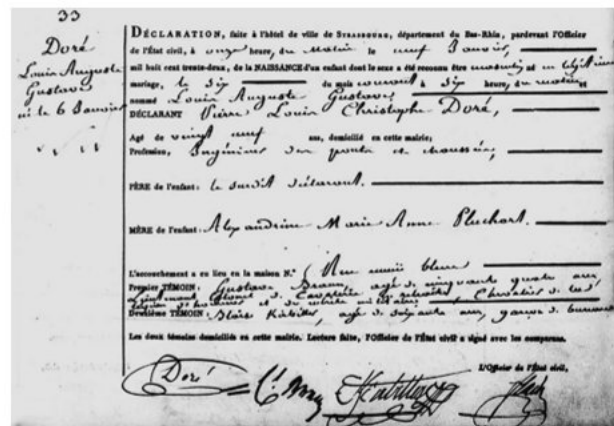 33
Doré
Louis Auguste
Gustave
né le 6 Janvier
DÉCLARATION, faite à l'hôtel de ville de STRASBOURG, département du Bas-Rhin, pardevant l'Officier
de l'État civil, à onze heure, du Matin le neuf Janvier,
mil huit cent trente-deux, de la NAISSANCE d'un enfant dont le sexe a été reconnu être masculin et en légitime
mariage, le six du mois courant à six heure, du matin et
nommé Louis Auguste Gustave
DÉCLARANT Pierre Louis Christophe Doré,
Agé de vingt neuf ans, domicilié en cette mairie;
Profession, Ingénieur des ponts et chaussées,
PÈRE de l'enfant: le susdit déclarant.
MÈRE de l'enfant: Alexandrine Marie Anne Pluchart.
L'accouchement a eu lieu en la maison N.° Rue nuée bleue
Premier TÉMOIN: Gustave Braun, agé de cinquante quatre ans,
Lieutenant Colonel de Cavalerie en retraite, Chevalier de la
légion d'honneur et du mérite militaire
Deuxième TÉMOIN: Blaise agé de soixante ans, garçon de bureau
Les deux témoins domiciliés en cette mairie. Lecture faite, l'Officier de l'État civil a signé avec les comparans.
L'Officier de l'État civil,
Doré